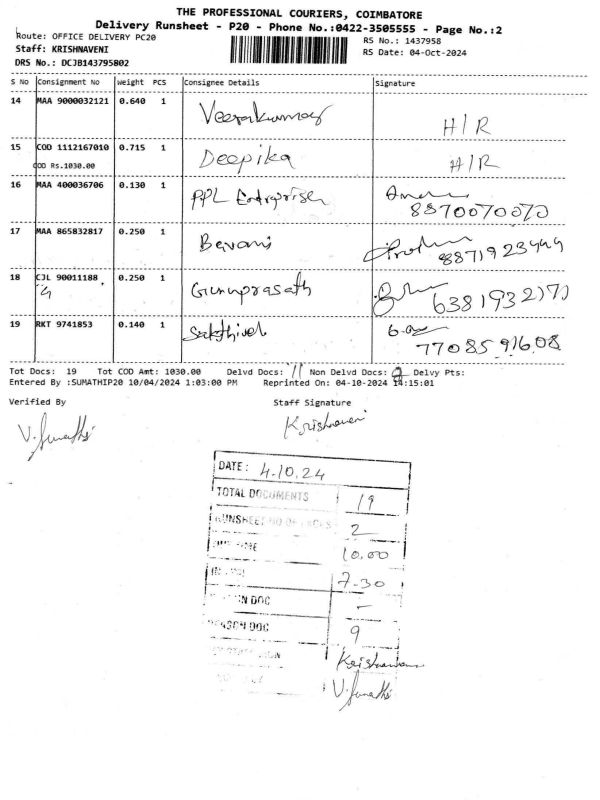 THE PROFESSIONAL COURIERS, COIMBATORE
Delivery Runsheet - P20 - Phone No.:0422-3505555 - Page No.:2
Route: OFFICE DELIVERY PC20
RS No.: 1437958
Staff: KRISHNAVENI
RS Date: 04-Oct-2024
DRS No.: DCJB143795802
S No Consignment No Weight PCS Consignee Details Signature
14 MAA 9000032121 0.640 1 Veerakumar H/R
15 COD 1112167010 0.715 1 Deepika H/R
COD Rs.1030.00
16 MAA 400036706 0.130 1 PPL Enterprises
8870070070
17 MAA 865832817 0.250 1 Bavani
8871923444
18 CJL 90011188 0.250 1 Guruprasath
6381932170
19 RKT 9741853 0.140 1 Sakthivel
77085 91608
Tot Docs: 19 Tot COD Amt: 1030.00 Delvd Docs: 11 Non Delvd Docs: Delvy Pts:
Entered By :SUMATHIP20 10/04/2024 1:03:00 PM Reprinted On: 04-10-2024 14:15:01
Verified By Staff Signature
V. Sumathi Krishnaveni
DATE: 4.10.24
TOTAL DOCUMENTS 19
RUNSHEET NO OF PAGES 2
10.00
7.30
DOC -
DOC 9
Krishnaveni
V. Sumathi